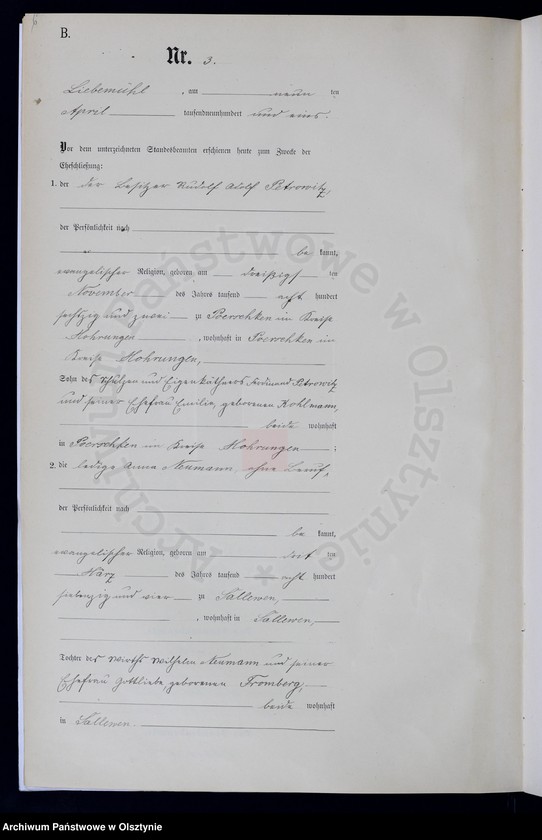 B.
Nr. 3.
Liebemühl, am neun ten
April tausendneunhundert und eins.
Vor dem unterzeichneten Standesbeamten erschienen heute zum Zwecke der
Eheschließung:
1. der der Besitzer Rudolf Adolf Petrowitz,
der Persönlichkeit nach
be kannt,
evangelischer Religion, geboren am dreißigst ten
November des Jahres tausend acht hundert
sechzig und zwei zu Poerschken im Kreise
Mohrungen, wohnhaft in Poerschken im
Kreise Mohrungen,
Sohn des Schulzen und Eigenkäthners Ferdinand Petrowitz
und seiner Ehefrau Emilie, geborenen Kohlmann,
beide wohnhaft
in Poerschken im Kreise Mohrungen;
2. die ledige Anna Neumann, ohne Beruf,
der Persönlichkeit nach
be kannt,
evangelischer Religion, geboren am ten
März des Jahres tausend acht hundert
siebenzig und vier zu Sallewen,
, wohnhaft in Sallewen,
Tochter des Wirths Wilhelm Neumann und seiner
Ehefrau Gottliebe, geborenen Fromberg,
beide wohnhaft
in Sallewen.
Archiwum Państwowe w Olsztynie *
Archiwum Państwowe w Olsztynie